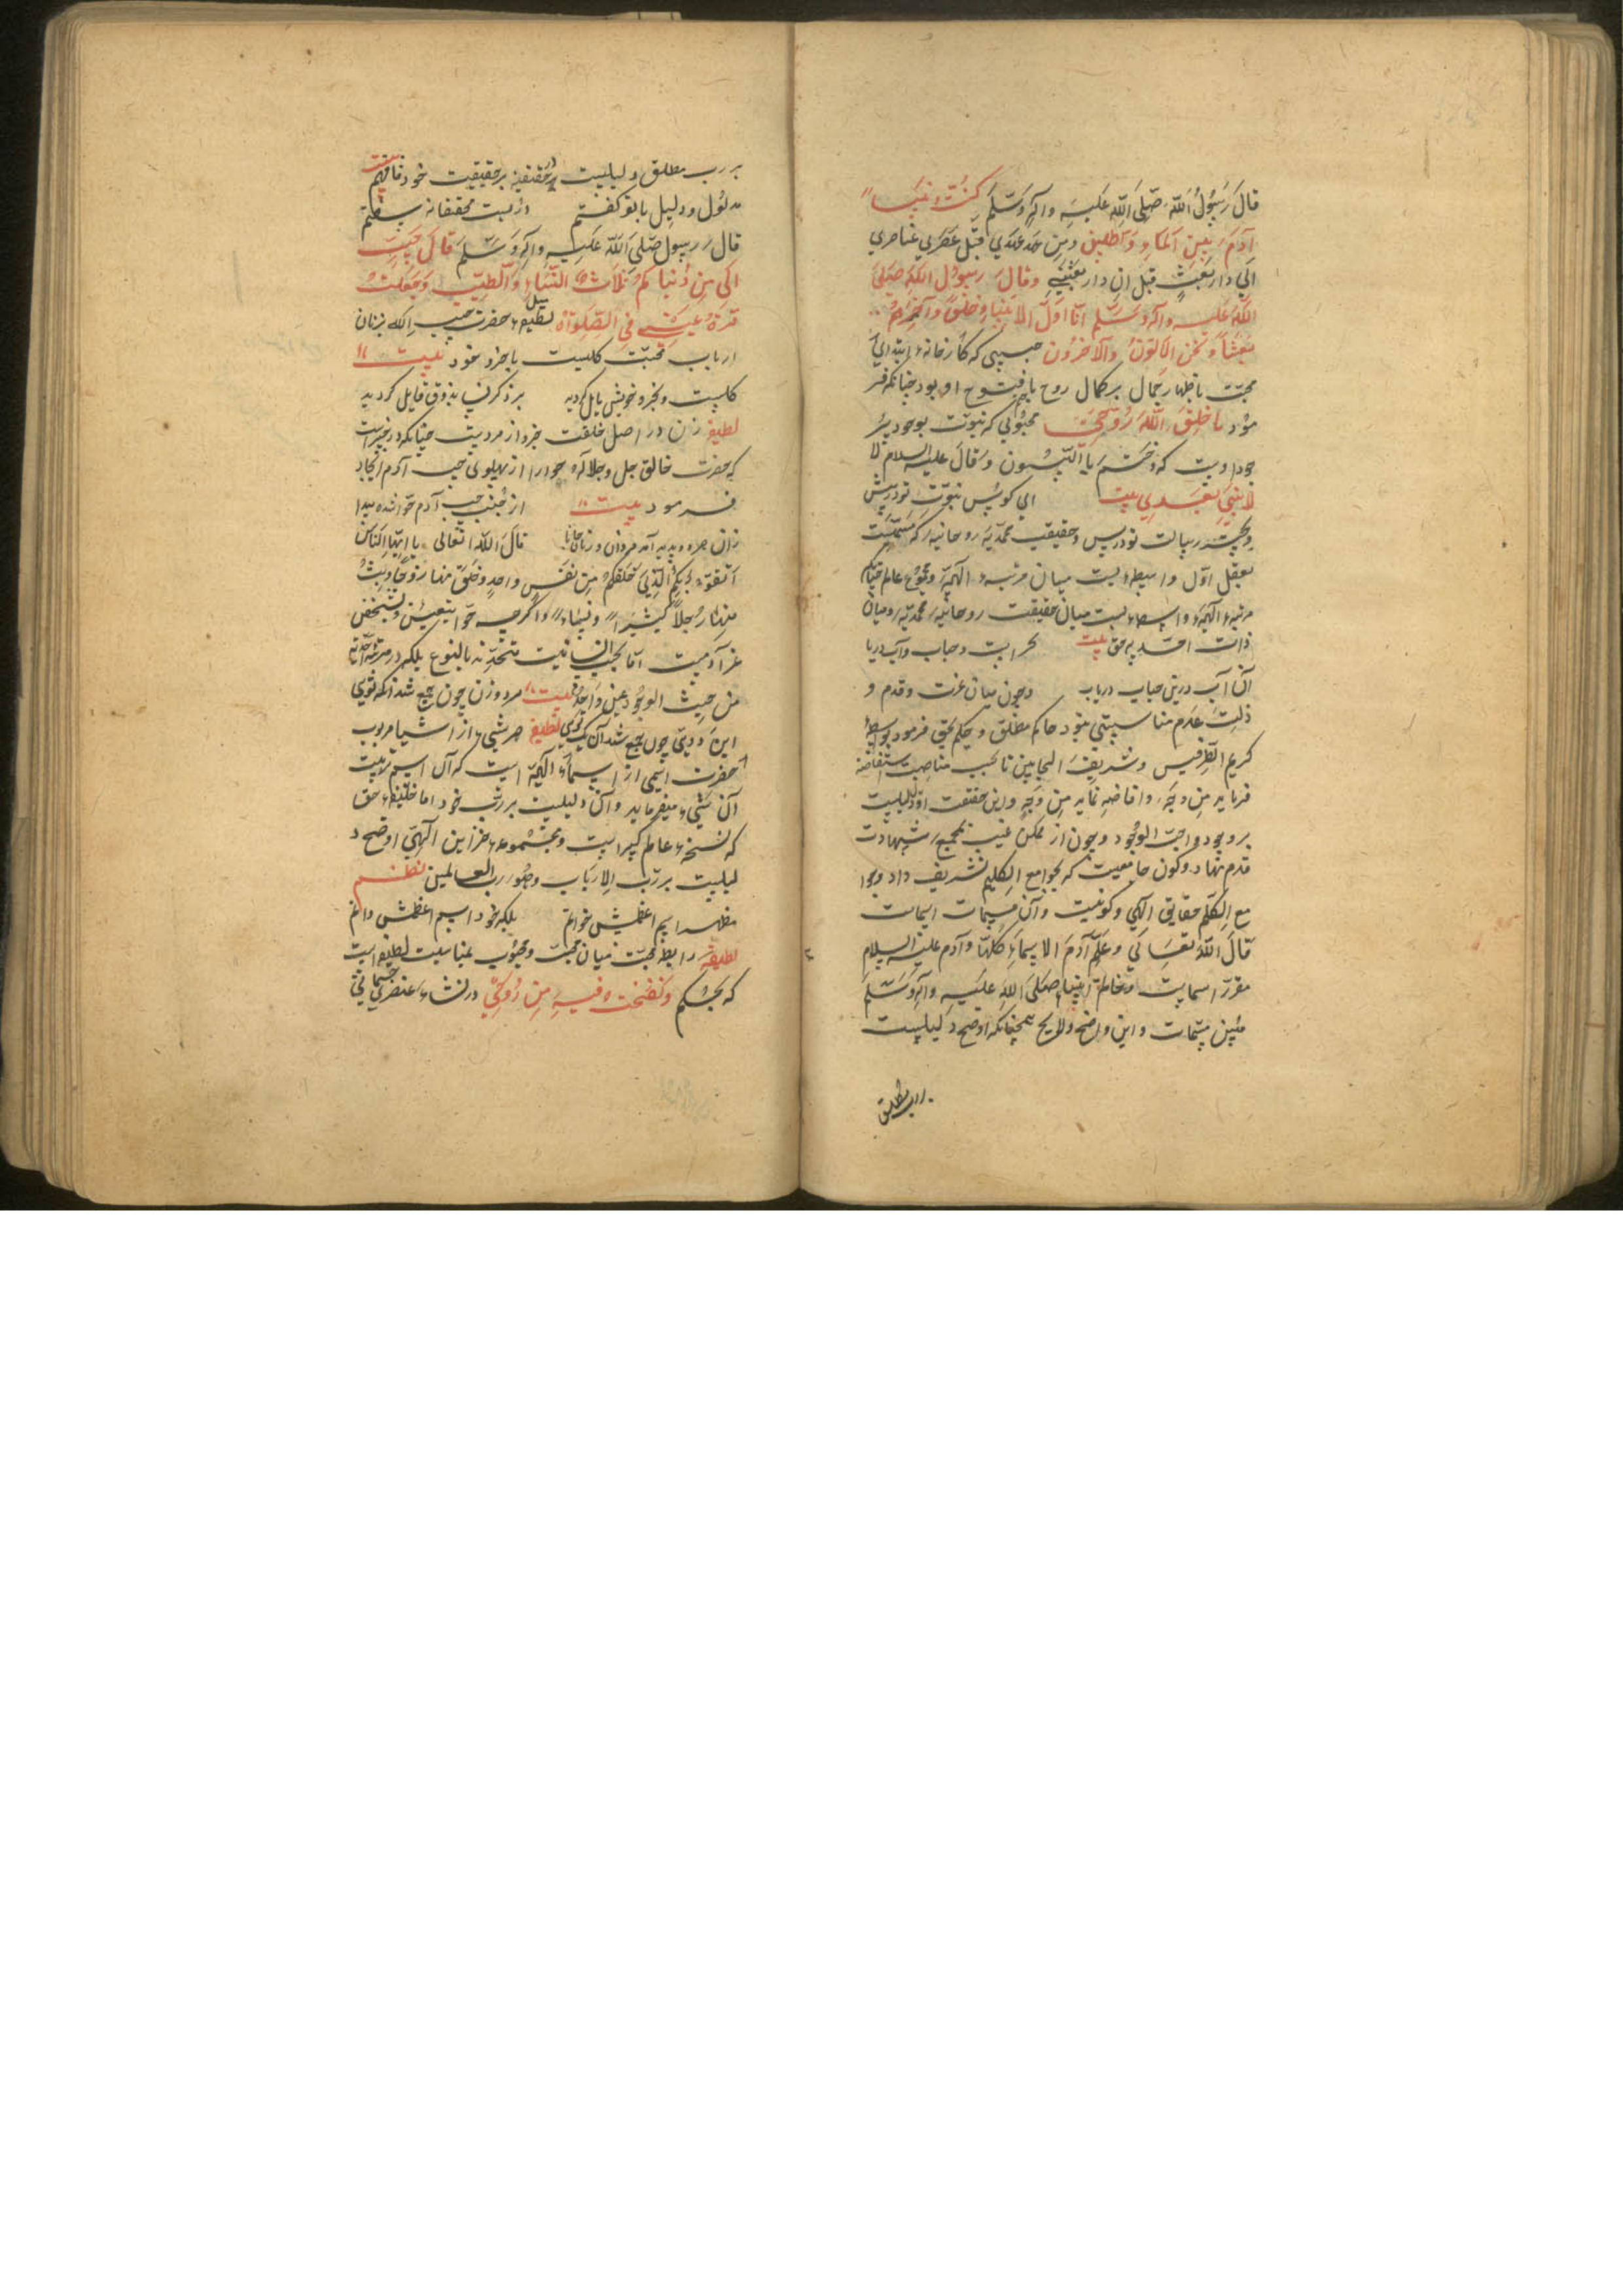 قال رَسُولُ الله صَلَّی اللهُ عَلَیهِ وآلِهِ وَسَلَّمَ کُنتُ نَبِیّاً
آدَمَ بَینَ المَاءِ وَالطِّینِ ومن قَبل عنصری عناصری
الی دار بَعثٍ قبل ان دار بعثتی وقال رسول الله صَلّی
اللهُ عَلَیهِ وآله وسَلَّم انا اوّل الانبیاءِ خلقاً وآخرهم
بعثاً ونحن الاوّلون والآخرون حبیبی که کارخانهٔ ابتدای
محبّت باظهار جمال بر کمال روح بافتوح او بود چنانکه فر
مود ما خلق اللهُ رُوحی محبوبی که نبوّت بوجود پر
جود اوست که ختم بالنّبیّون وقال علیه السلام لا
لا نبیّ بعدی بیت ای کوس نبوّت تو در پیش
وحجت رسالت تو درپس وحقیقت محمدیهٔ روحانیه که مسمّیست
بعقل اوّل واسطهٔ است میان مرتبهٔ الهیّه ومجموع عالم چنانکه
مرتبهٔ الهیّه واسطهٔ است میان حقیقت روحانیهٔ محمدیّه ومیان
ذات احدیه حق بیت بحر است وحباب وآب دریا
آن آب درین حباب دریاب وچون میان عزت وقدم و
ذلت عدم مناسبتی نبود حاکم مطلق وحکم حق فرمود بواسطهٔ
کریم الطرفین وشریف الجانبین تا بحسب مناصبت استفاضه
فرماید من وجهٍ وافاضه نماید من وجهٍ واین حقیقت اوّل دلیلیست
بر وجود واجب الوجود وچون از ممکن غیب بمجمع شهادت
قدم نهاد وکون جامعیت که بجوامع الکلم تشریف داد وجوا
مع الکلم حقایق الهی وکونیست وآن مسمیات اسماست
قال اللهُ تَعَالی وعَلَّمَ آدَمَ الاسماءَ کُلّها وآدم علیه السلام
مقرر اسماست وخاتم انبیا صَلَّی اللهُ عَلَیهِ وآلِهِ وَسَلَّمَ
مبین مسمّیات واین واضح ولایح همچنانکه اوضح دلیلیست
بر رب مطلق
بر رب مطلق دلیلیست در حقیقت بر حقیقت خود فافهم بیت
مدلول ودلیل با تو گفتم در بیت محققانه سفتم
قال رسول صَلّی اللهُ عَلَیهِ وآلِهِ وَسَلَّمَ قال حُبِّبَ
الی مِن دُنیاکُم ثلاث النِّساءِ والطّیب وجعلت
قرّة عینی فی الصلوة لطیفه میل حضرت حبیب الله بزنان
ارباب محبّت کلیست باجزو خود بیت
کلیست وبجزو خویش مایل گردید بر ذکر بذوق قایل گردید
لطیفه زن در اصل خلقت جزو از مردست چنانکه در خبر است
که حضرت خالق جل وجلاله حوا را از پهلوی چپ آدم ایجاد
فرمود بیت از جنب چپ آدم حوا شده پیدا
زان هر دو پدید آمد مردان وزنان جانا قال الله تعالی یا ایّها النّاس
اتّقوا ربّکم الّذی خَلَقَکُم مِن نَفسٍ واحدٍ وخلق منها زوجها وبثّ
منهما رجالاً کثیراً ونساءً واگرچه حوّا بتعیّن وتشخّص
غیر آدمست امّا بحسب انسانیت متّحدند بالنوع بلکه در مرتبه احدیّه
من حیث الوجود عین واحدند بیت مرد وزن چون جمع شد آنکه توی
این دویی چون جمع شد آن یک توی لطیفه هر شیء از اشیا مربوب
حضرت اسمی از اسماء الهیّه است که آن اسم تربیت
آن شیء میفرماید وآن دلیلیست بر ربّ خود اما خلیفهٔ حق
که نسخهٔ عالم کبیر است ومجموعهٔ خزاین الهی اوضح د
لیلیست بر ربّ الارباب وظهور رب العالمین نظم
مظهر اسم اعظمش خوانم بلکه خود اسم اعظمش دانم
لطیفه رابطهٔ محبّت میان محبّ ومحبوب بمناسبت لطیفه است
که بحکم ونفخت فیه من رُوحی در نشاءهٔ عنصری جسمانی